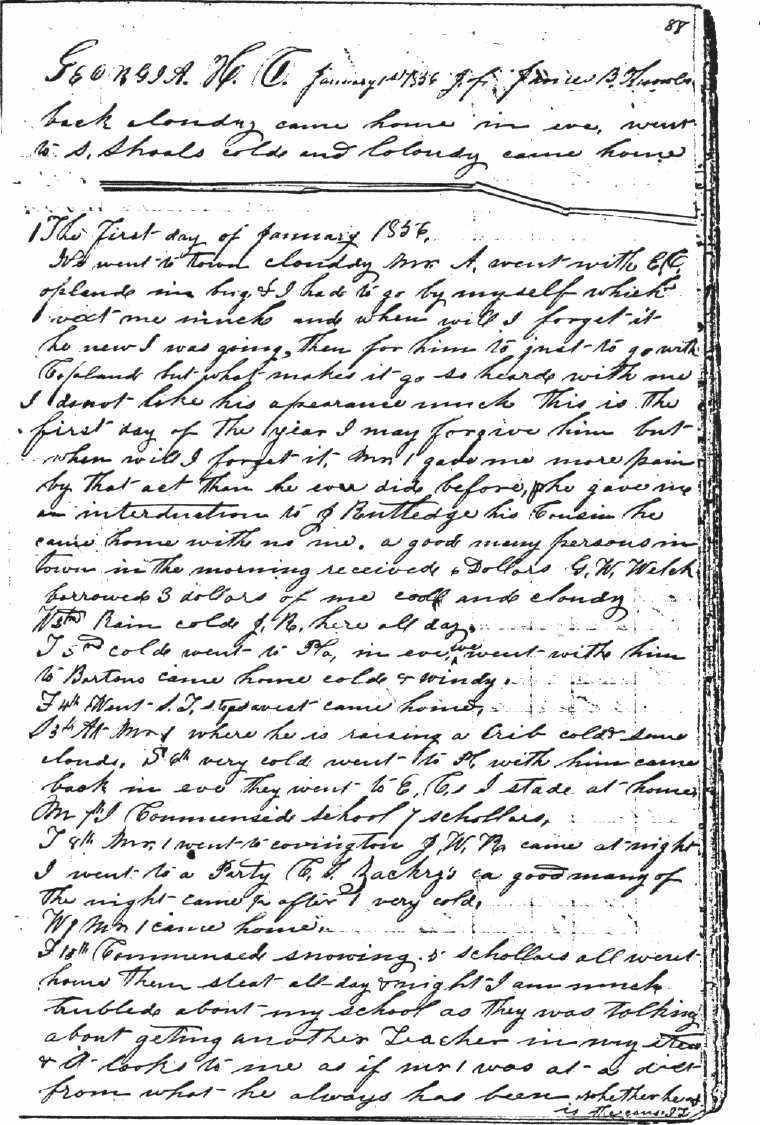 88
GEORGIA. H. T. January 1st 1856 J. f. Junice B.
back cloudy came home in eve, went
to S, Shoals cold and Coloudy came home
1 The first day of January 1856.
We went to town clouddy Mr A. went with E C.
opland in bug & I had to go by myself which
vext me much and when will I forget it
he new I was going, then for him to just to go with
Copland but what makes it go so heard with me
I do not like his apearance much this is the
first day of the year I may forgive him but
when will I forget it, Mr 1 gave me more pain
by that act than he ever did before, he gave me
an interduction to J Rutledge his Cousin he
came home with no me. a good many persons in
town in the morning received Dollars G. W. Welch
borrowed 3 dollars of me cold and cloudy
Rain cold J. R. here all day.
T 3rd cold went to Pa, in eve we went with him
to Bartons came home cold & windy.
F 4th Went S. T, came home,
At Mr 1 where he is raising a Crib cold some
clouds. S 6th very cold went to H with him came
back in eve they went to E. C.s I stade at home
M 7th I Commensed school 7 schollars,
T 8th Mr. 1 went to covington J, W, R came at night
I went to a Party C. T. Zachry's a good many of
the night came after 1 very cold,
W 9 Mr 1 came home.
Commensed snowing. 5 schollars all went
home then sleat all day & night I am much
trubled about my school as they was talking
about geting another Teacher in my stead
& it looks to me as if mr 1 was at a dist
from what he always has been whether he
is the cause I